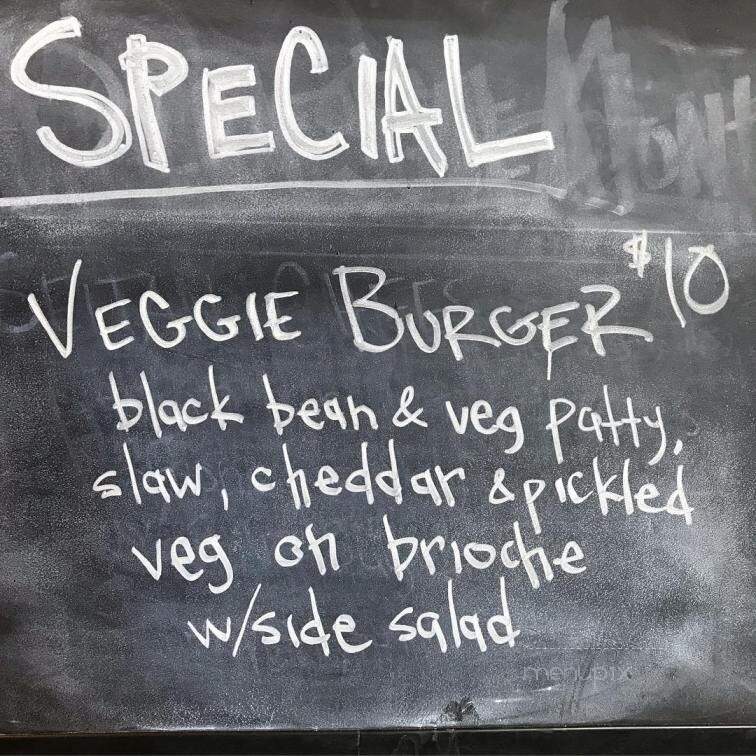 SPECIAL
VEGGIE BURGER $10
black bean & veg patty,
slaw, cheddar & pickled
veg on brioche
w/side salad
menupix